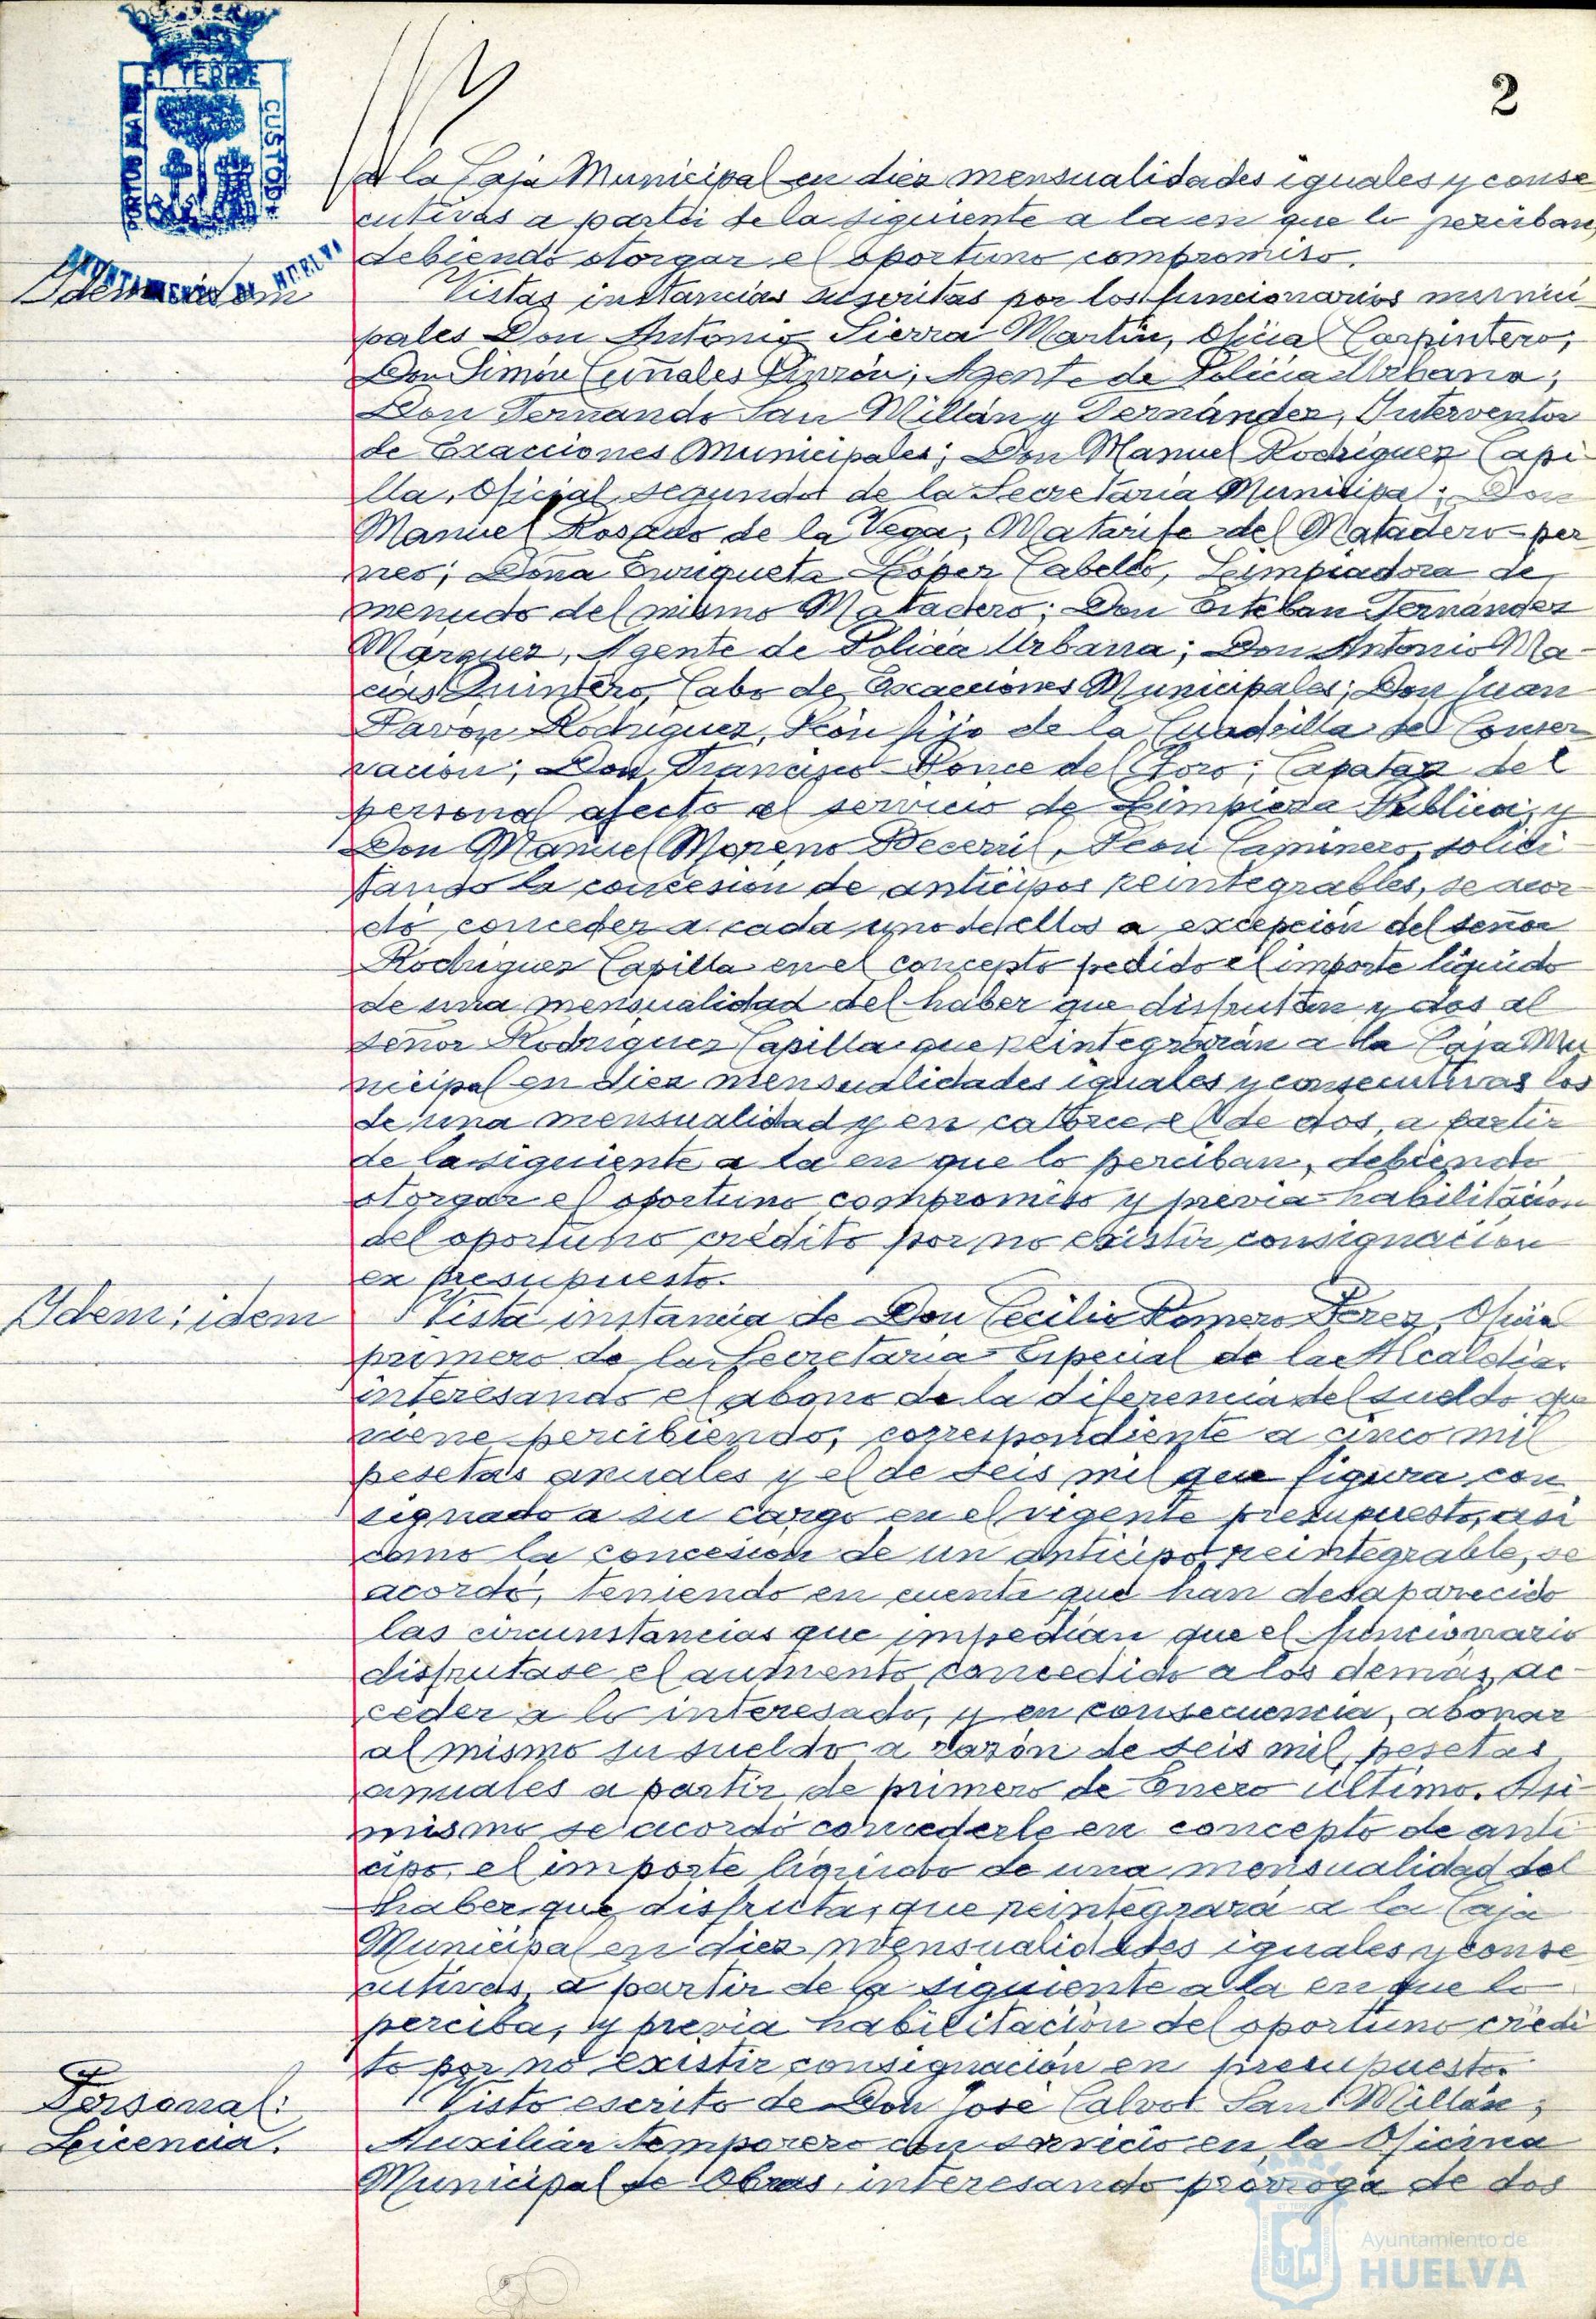 2
PORTUS MARIS
ET TERRE
CUSTODIA
AYUNTAMIENTO DE HUELVA
a la Caja Municipal en diez mensualidades iguales y conse
cutivas a partir de la siguiente a la en que lo perciban,
debiendo otorgar el oportuno compromiso.
Idem idem
Vistas instancias suscritas por los funcionarios munici
pales Don Antonio Sierra Martín, Oficial Carpintero;
Don Simón Cumbreles Pinzón, Agente de Policía Urbana;
Don Fernando San Millán y Fernández, Interventor
de Exacciones Municipales; Don Manuel Rodríguez Capi-
lla, Oficial segundo de la Secretaría Municipal; Don
Manuel Rosado de la Vega, Matarife del Matadero per
nes; Doña Enriqueta López Cabello, Limpiadora de
menudo del mismo Matadero; Don Esteban Fernández
Márquez, Agente de Policía Urbana; Don Antonio Ma-
cías Quintero, Cabo de Exacciones Municipales; Don Juan
Pavon Rodríguez, Peón fijo de la Cuadrilla de Conser
vación; Don Francisco Ponce del Toro; Capataz del
personal afecto al servicio de Limpieza Pública; y
Don Manuel Moreno Becerril, Peón Caminero, solici-
tando la concesión de anticipos reintegrables, se acor
dó conceder a cada uno de ellos a excepción del señor
Rodríguez Capilla en el concepto pedido el importe líquido
de una mensualidad del haber que disfrutan y dos al
señor Rodríguez Capilla que reintegrarán a la Caja Mu
nicipal en diez mensualidades iguales y consecutivas los
de una mensualidad y en catorce el de dos, a partir
de la siguiente a la en que lo perciban, debiendo
otorgar el oportuno compromiso y previa habilitación
del oportuno crédito por no existir consignación
en presupuesto.
Idem; idem
Vista instancia de Don Cecilio Romero Pérez, Oficial
primero de la Secretaría Especial de la Alcaldía,
interesando el abono de la diferencia del sueldo que
viene percibiendo, correspondiente a cinco mil
pesetas anuales y el de seis mil que figura con
signado a su cargo en el vigente presupuesto, así
como la concesión de un anticipo reintegrable, se
acordó, teniendo en cuenta que han desaparecido
las circunstancias que impedían que el funcionario
disfrutase el aumento concedido a los demás, ac-
ceder a lo interesado, y en consecuencia, abonar
al mismo su sueldo a razón de seis mil pesetas
anuales a partir de primero de Enero último. Asi-
mismo se acordó concederle en concepto de anti
cipo, el importe líquido de una mensualidad del
haber que disfruta, que reintegrará a la Caja
Municipal en diez mensualidades iguales y conse
cutivas, a partir de la siguiente a la en que lo
perciba, y previa habilitación del oportuno crédi
to por no existir consignación en presupuesto.
Personal:
Licencia.
Visto escrito de Don José Calvot San Millán,
Auxiliar temporero con servicio en la Oficina
Municipal de Obras, interesando prórroga de dos
Ayuntamiento de
HUELVA